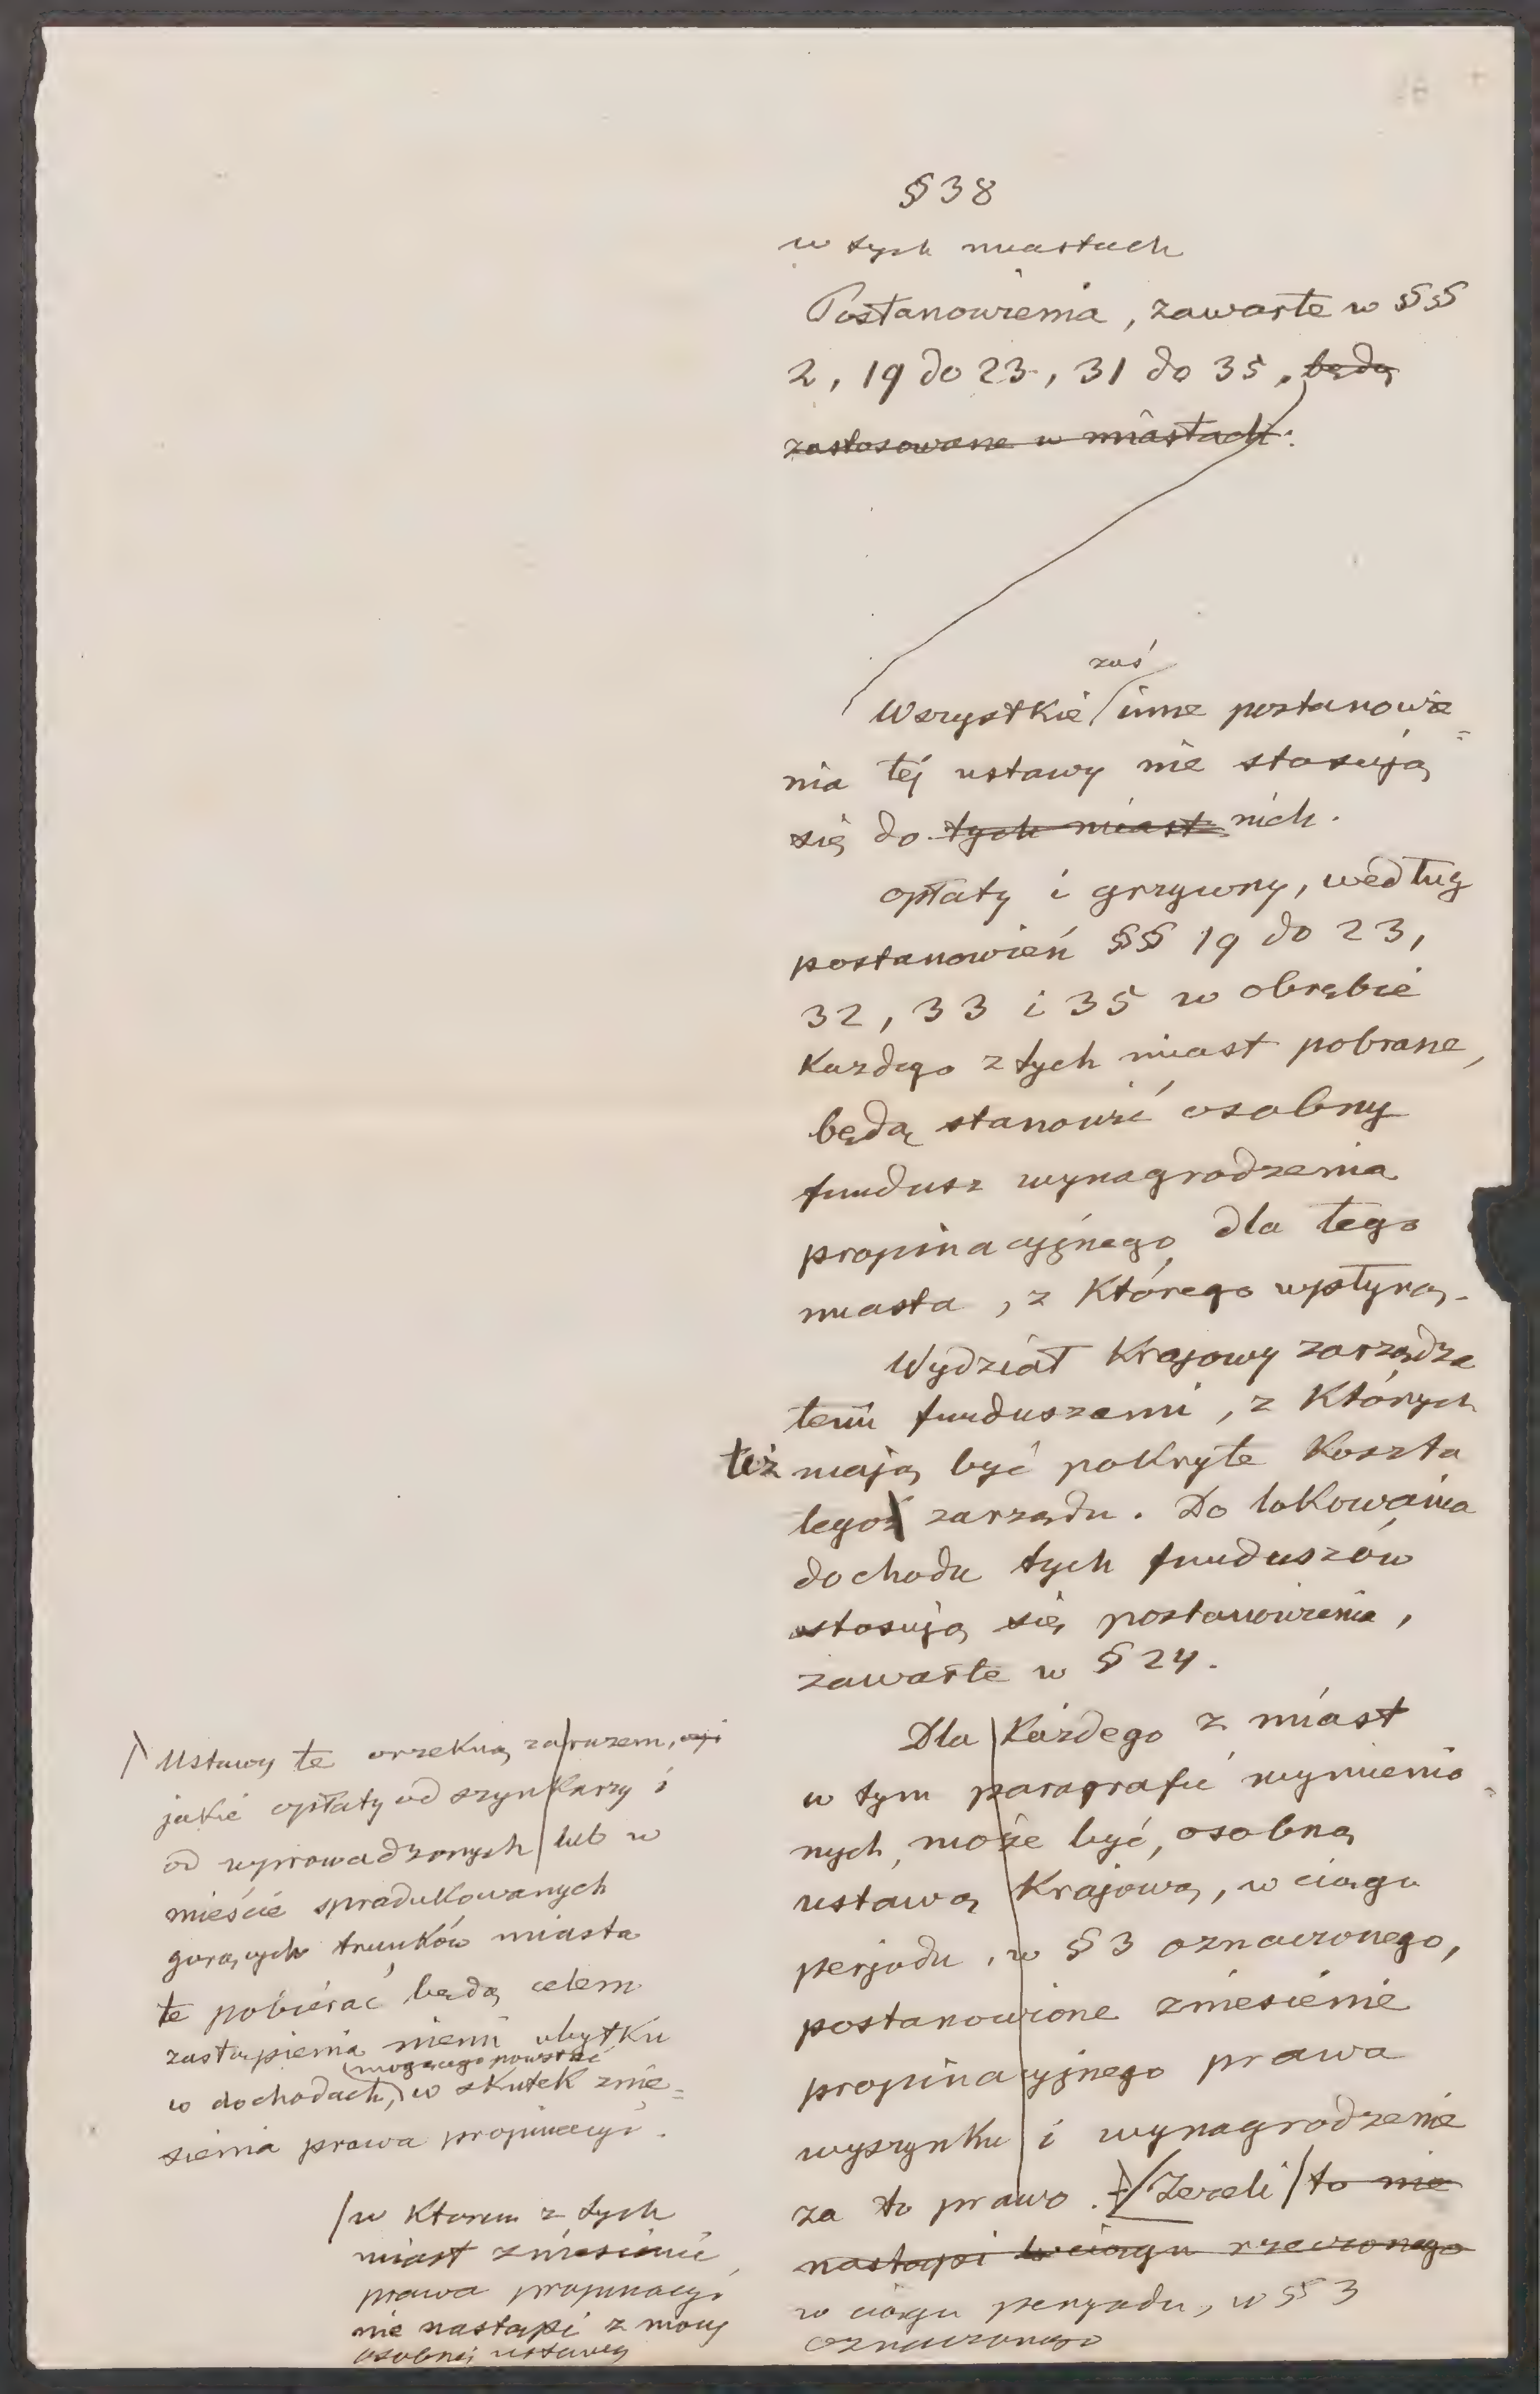 § 38
w tych miastach
Postanowienia, zawarte w §§
2, 19 do 23, 31 do 35, będą
zastosowane w miastach:
zaś
Wszystkie inne postanowie=
nia tej ustawy nie stosują
się do tych miast nich.
opłaty i grzywny, według
postanowień §§ 19 do 23,
32, 33 i 35 w obrębie
Każdego z tych miast pobrane,
będą stanowić osobny
fundusz wynagrodzenia
propinacyjnego dla tego
miasta, z Którego wpłyną.
Wydział Krajowy zarządza
temi funduszami, z Których
też mają być poKryte Koszta
tegoż zarządu. Do loKowania
dochodu tych funduszów
stosują się postanowienia,
zawarte w § 24.
Dla Każdego z miast
w tym paragrafie wymienio=
nych, może być, osobną
ustawą Krajową, w ciągu
perjodu, w § 3 oznaczonego,
postanowione zniesienie
propinacyjnego prawa
wyszynku i wynagrodzenie
za to prawo. Jeżeli to nie
nastąpi w ciągu rzeczonego
w ciągu peryodu, w § 3
oznaczonego
Ustawy te orzekną zarazem,
jakie opłaty od szynkarzy i
od wprowadzonych lub w
mieście spradukowanych
gorących trunków miasta
te pobierać będą celem
zastąpienia niemi ubytku
mogącego powstać
w dochodach, w skutek znie=
sienia prawa propinacyi.
w Którem z tych
miast zniesienie
prawa propinacyi
nie nastąpi z mocy
osobnej ustawy